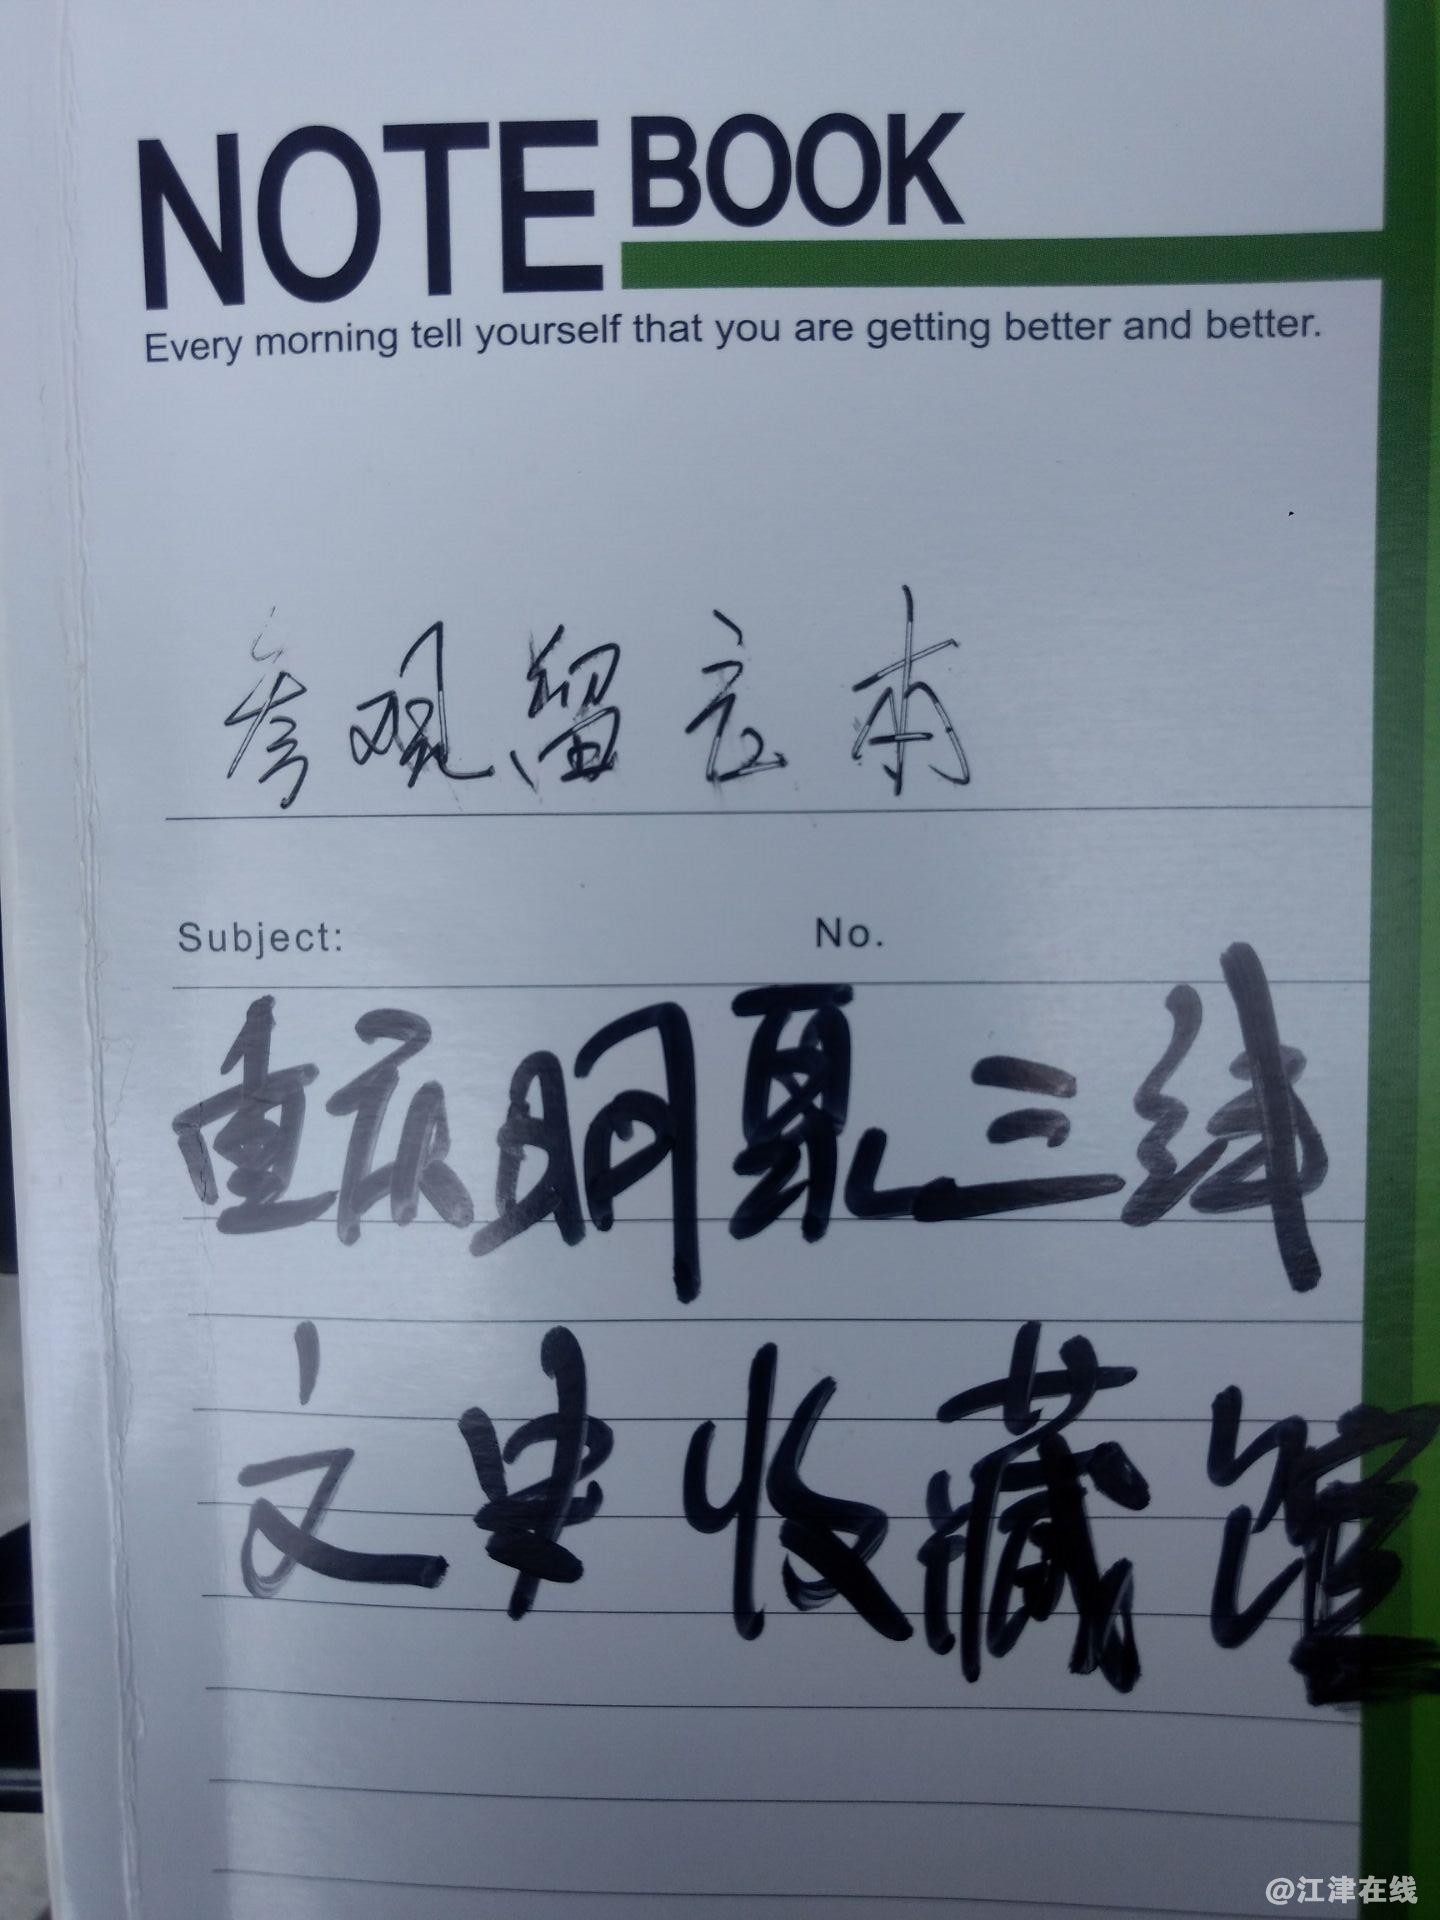 NOTEBOOK
Every morning tell yourself that you are getting better and better.
参观留言本
Subject: No.
重庆明夏三线
文史收藏馆
@江津在线